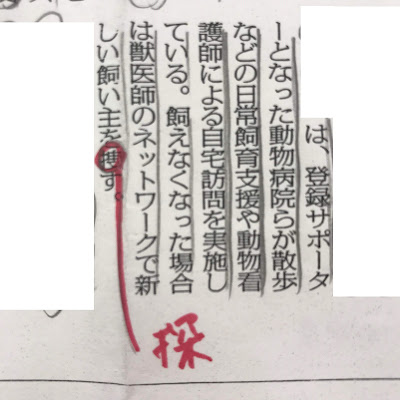 は、登録サポータ
ーとなった動物病院らが散歩
などの日常飼育支援や動物看
護師による自宅訪問を実施し
ている。飼えなくなった場合
は獣医師のネットワークで新
しい飼い主を捜す。
探